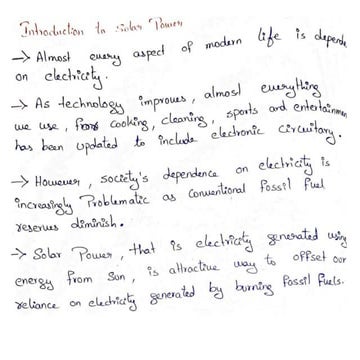 Introduction to Solar Power
→ Almost every aspect of modern life is depende
on electricity.
→ As technology improves, almost everything
we use, from cooking, cleaning, sports and entertainmen
has been updated to include electronic circuitary.
→ However, society's dependence on electricity is
increasingly Problematic as conventional fossil fuel
reserves diminish.
→ Solar Power, that is electricity generated using
energy from Sun, is attractive way to offset our
reliance on electricity generated by burning Fossil Fuels.